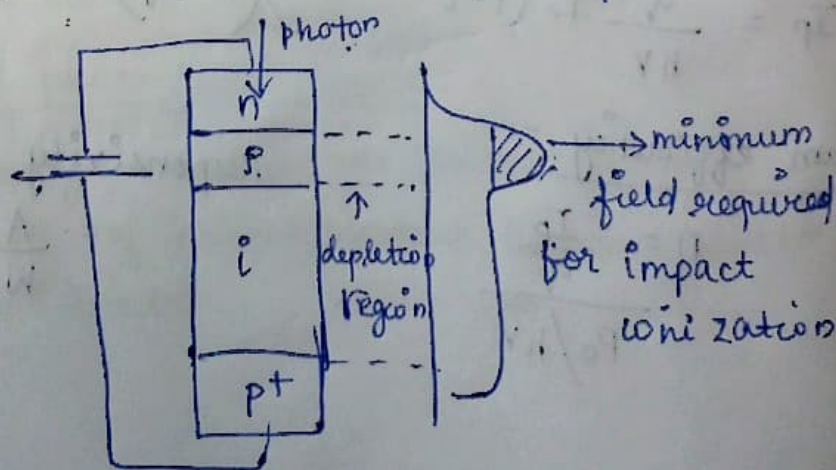 photon
n
P
i
p+
depletion
region
minimum
field required
for impact
ionization